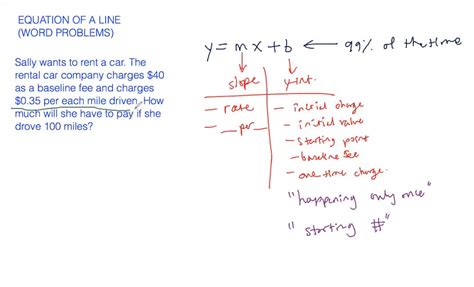 EQUATION OF A LINE
(WORD PROBLEMS)
Sally wants to rent a car. The
rental car company charges $40
as a baseline fee and charges
$0.35 per each mile driven. How
much will she have to pay if she
drove 100 miles?
y = mx + b ← 99% of the time
slope
y-int.
- rate
- __ per __
- initial charge
- initial value
- starting point
- baseline fee
- one time charge
"happening only once"
"starting #"